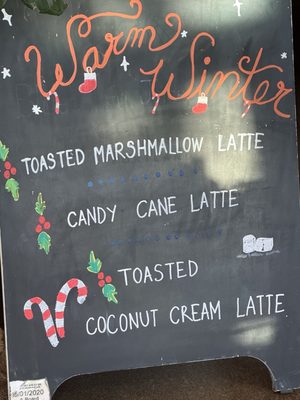 Warm
Winter
TOASTED MARSHMALLOW LATTE
CANDY CANE LATTE
TOASTED
COCONUT CREAM LATTE